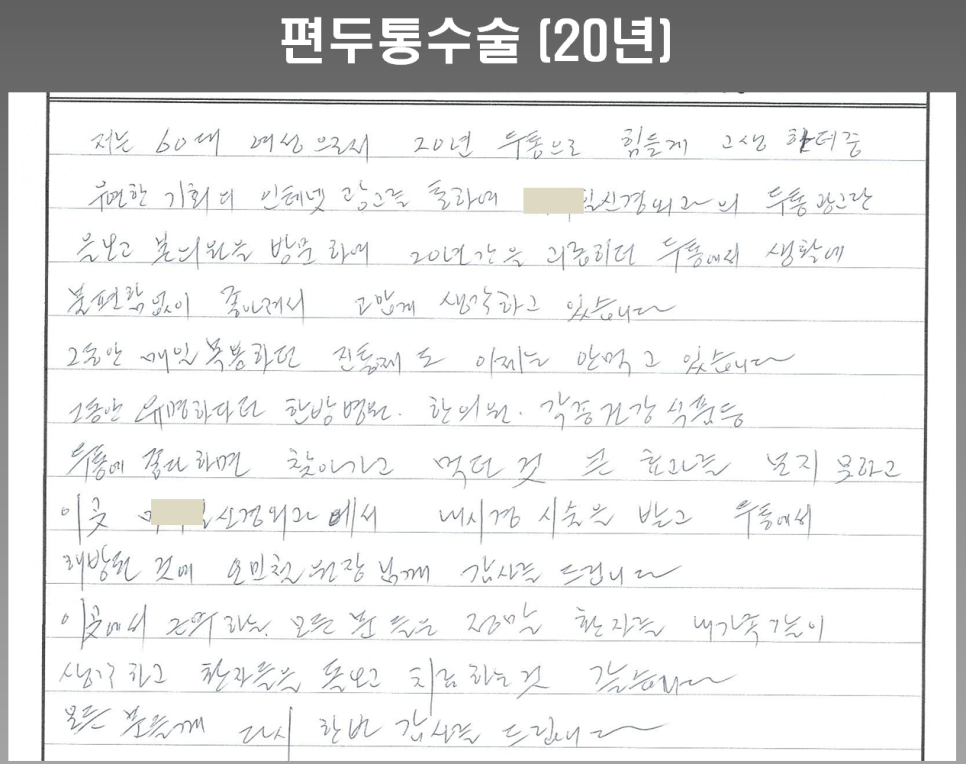 편두통수술 (20년)
저는 60대 여성으로서 20년 두통으로 힘들게 고생 하던중
우연한 기회에 인테넷 광고를 통하여 일신경외과의 두통 광고란
을보고 본의원을 방문하여 20년간을 괴롭히던 두통에서 생활에
불편함없이 좋아져서 고맙게 생각하고 있습니다
그동안 매일 복용하던 진통제도 이제는 안먹고 있습니다
그동안 유명하다던 한방병원. 한의원. 각종건강식품등
두통에 좋다하면 찾아가고 먹던것 큰 효과를 보지 못하고
이곳 신경외과에서 내시경 시술을 받고 두통에서
해방된 것에 오민철 원장님께 감사를 드립니다
이곳에서 근무하는 모든 분들은 정말 환자를 내가족같이
생각하고 환자들을 돌보고 치료하는것 같습니다
모든 분들께 다시 한번 감사를 드립니다